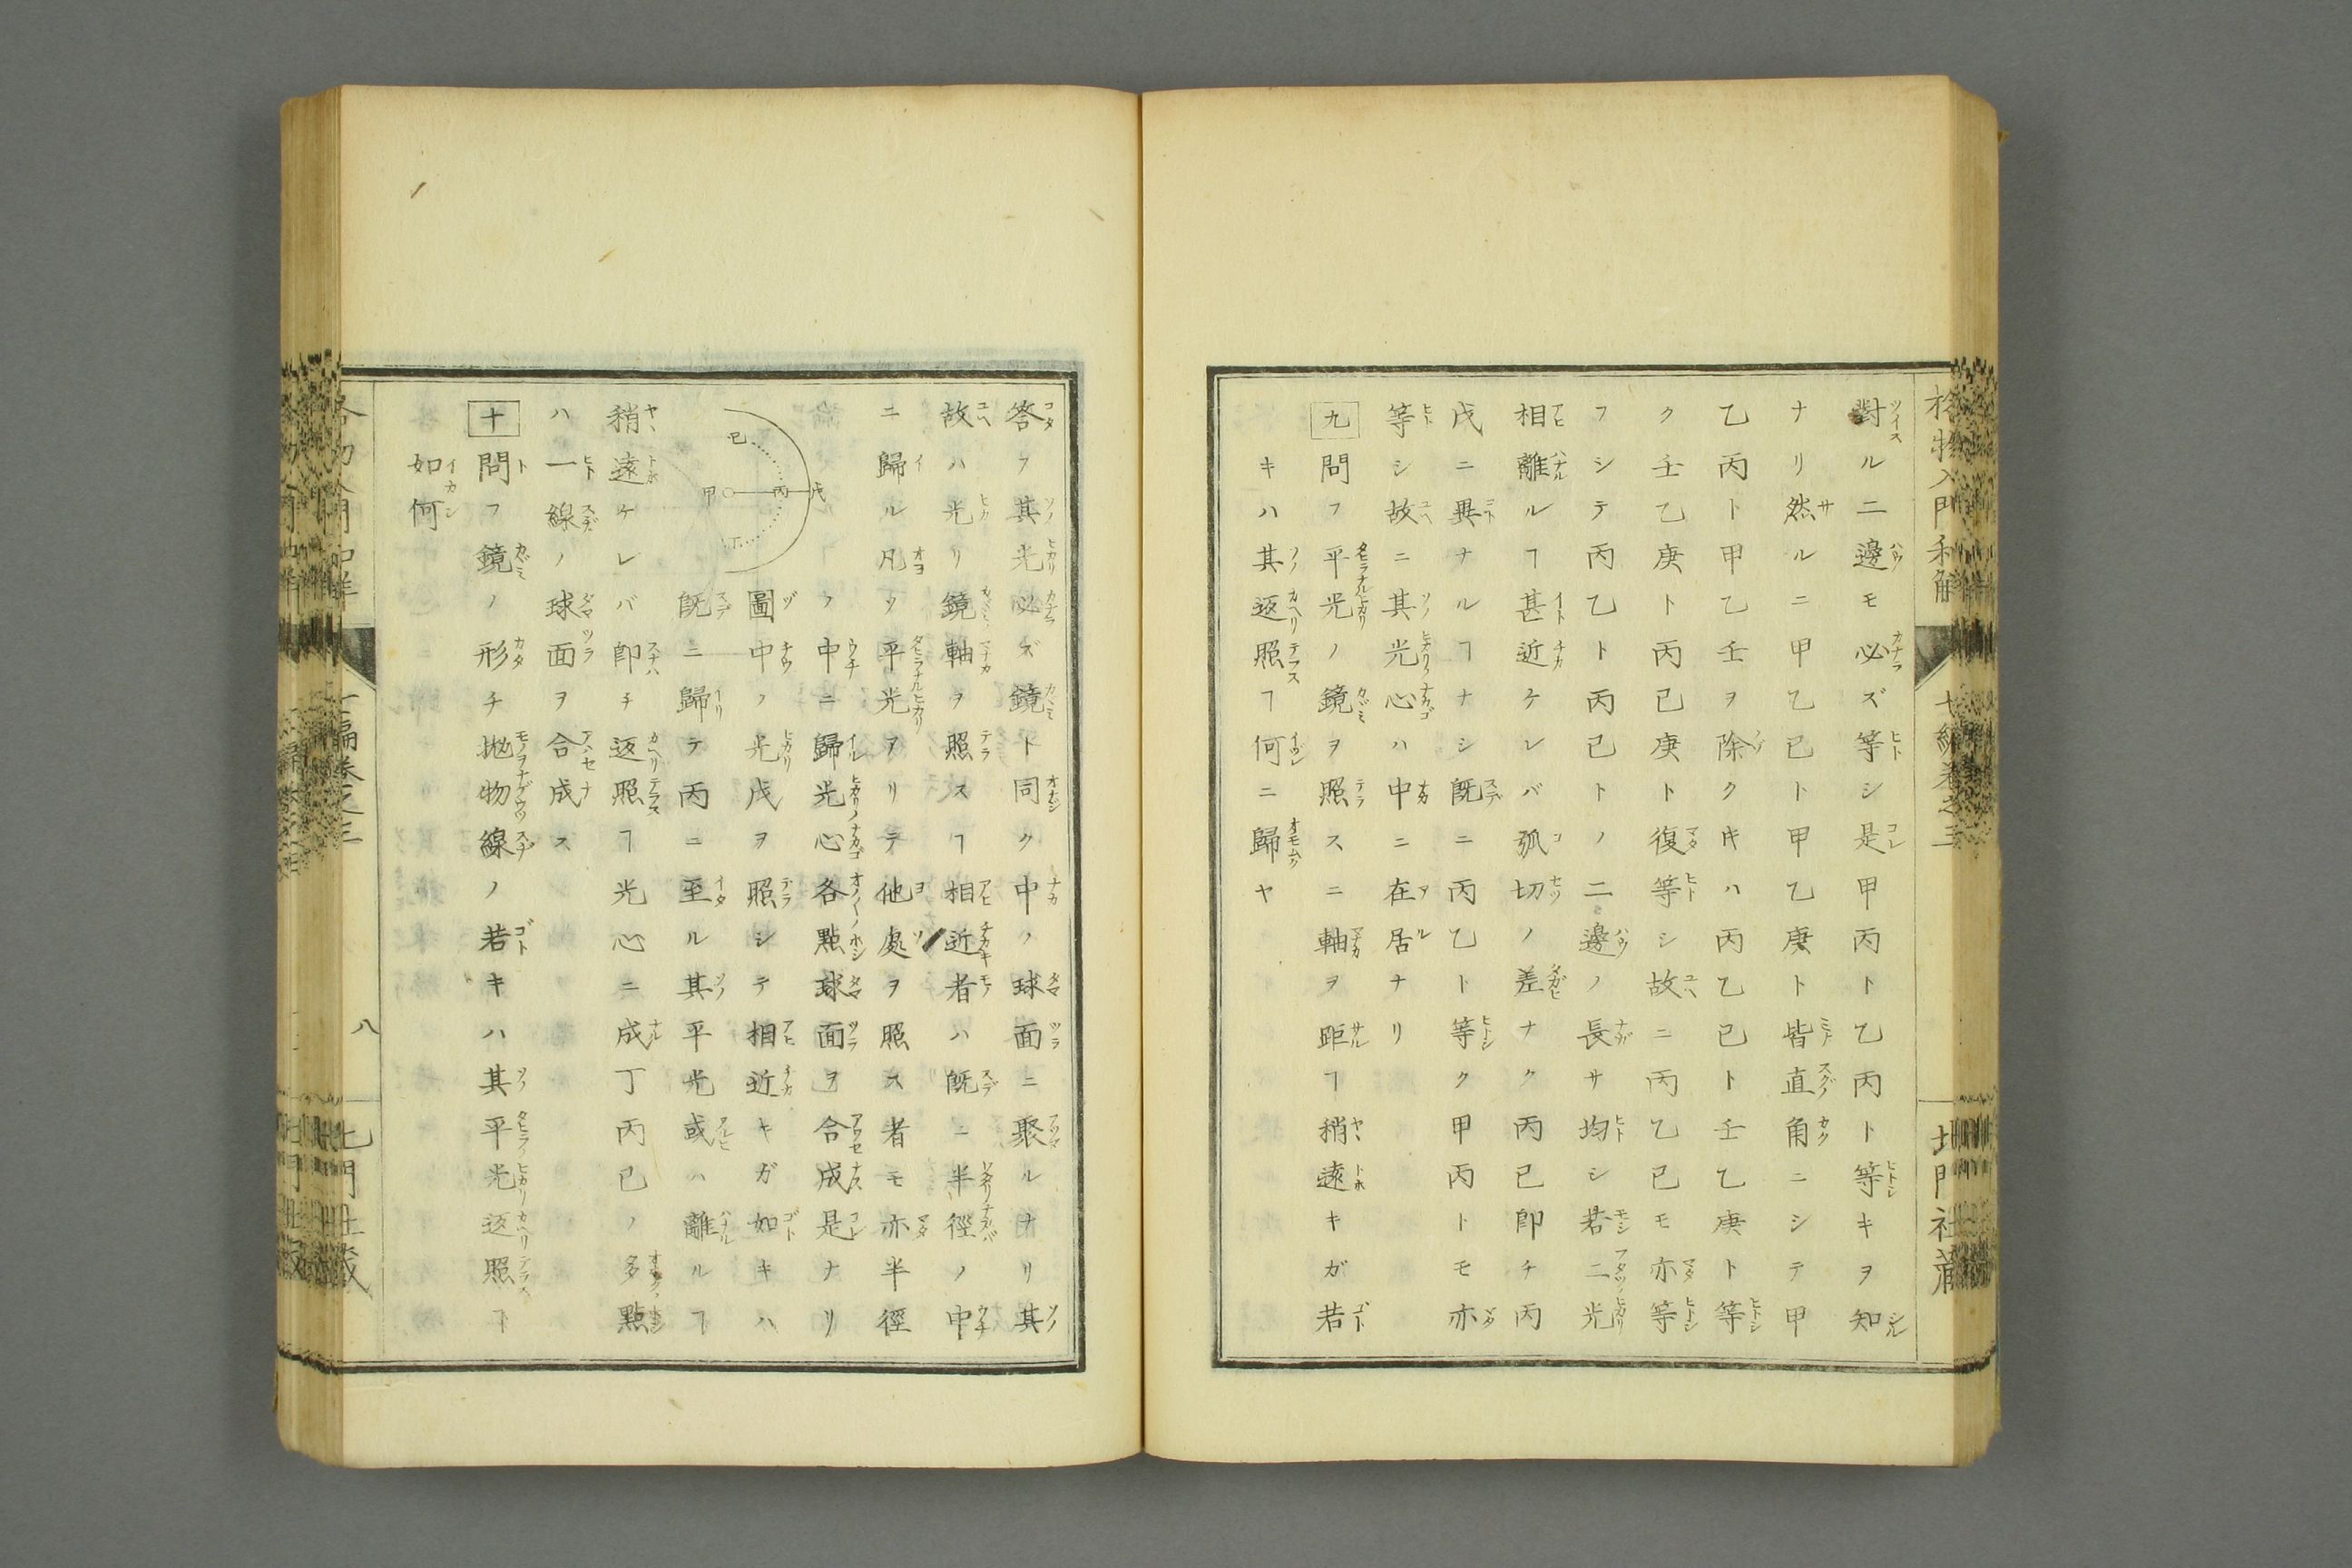 格物入門和解
對ル二邊モ必ズ等シ是甲丙ト乙丙ト等キヲ知
ナリ然ルニ甲乙已ト甲乙庚ト皆直角ニシテ甲
乙丙ト甲乙壬ヲ除クキハ丙乙已ト壬乙庚ト等
ク壬乙庚ト丙已庚ト復等シ故ニ丙乙已モ亦等
フシテ丙乙ト丙已トノ二邊ノ長サ均シ若二光
相離ルヿ甚近ケレバ弧切ノ差ナク丙已即チ丙
戊ニ異ナルヿナシ既ニ丙乙ト等ク甲丙トモ亦
等シ故ニ其光心ハ中ニ在居ナリ
九 問フ平光ノ鏡ヲ照スニ軸ヲ距ヿ稍遠キガ若
キハ其返照ヿ何ニ歸ヤ
答フ其光必ズ鏡ト同ク中ノ球面ニ聚ルナリ其
故ハ光リ鏡軸ヲ照スヿ相近者ハ既ニ半徑ノ中
ニ歸ル凡ソ平光アリテ他處ヲ照ス者モ亦半徑
ノ中ニ歸光心各點球面ヲ合成是ナリ
圖中ノ光戊ヲ照シテ相近キガ如キハ
既ニ歸テ丙ニ至ル其平光或ハ離ルヿ
稍遠ケレバ即チ返照ヿ光心ニ成丁丙已ノ多點
ハ一線ノ球面ヲ合成ス
十 問フ鏡ノ形チ拋物線ノ若キハ其平光返照ヿ
如何
甲 丙 戊
已
丁
八